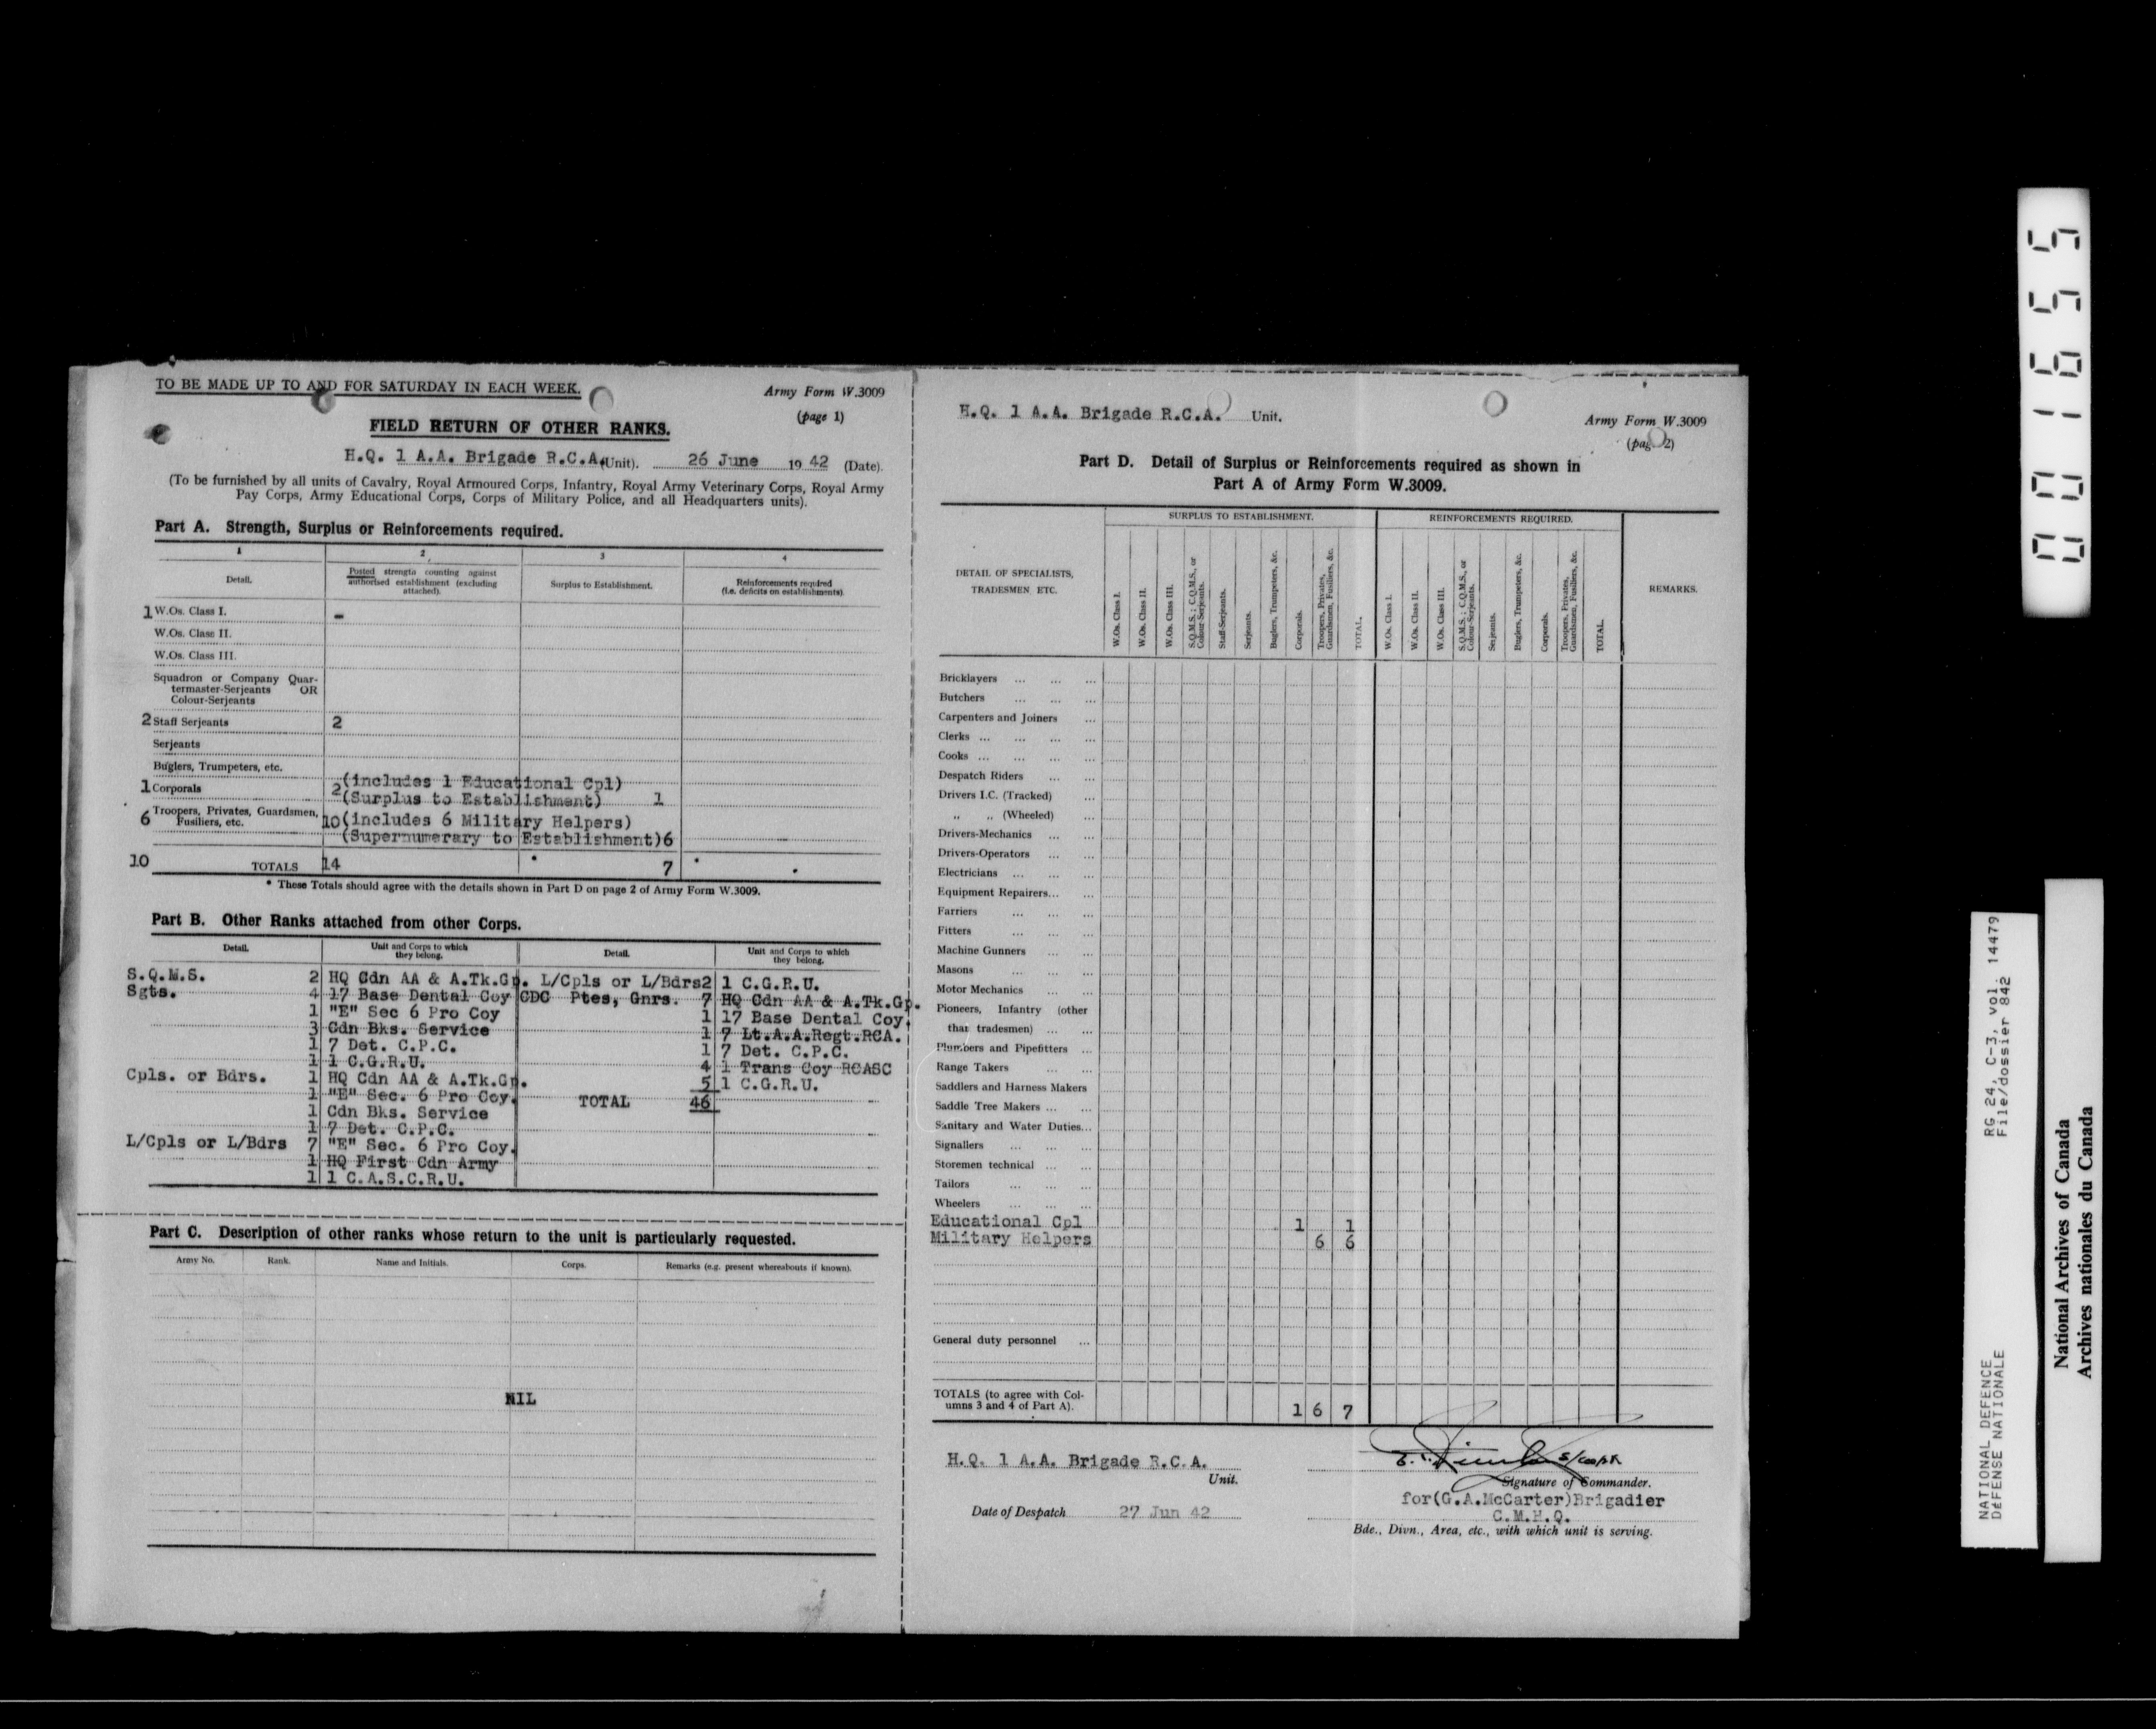 TO BE MADE UP TO AND FOR SATURDAY IN EACH WEEK.
Army Form W.3009
(page 1)
FIELD RETURN OF OTHER RANKS.
H.Q. 1 A.A. Brigade R.C.A. (Unit). 26 June 19 42 (Date).
(To be furnished by all units of Cavalry, Royal Armoured Corps, Infantry, Royal Army Veterinary Corps, Royal Army
Pay Corps, Army Educational Corps, Corps of Military Police, and all Headquarters units).
Part A. Strength, Surplus or Reinforcements required.
1 2 3 4
Detail.
Posted strength counting against
authorised establishment (excluding
attached).
Surplus to Establishment.
Reinforcements required
(i.e. deficits on establishments).
1 W.Os. Class I. -
W.Os. Class II.
W.Os. Class III.
Squadron or Company Quar-
termaster-Serjeants OR
Colour-Serjeants
2 Staff Serjeants 2
Serjeants
Buglers, Trumpeters, etc.
(includes 1 Educational Cpl)
1 Corporals 2
(Surplus to Establishment) 1
6 Troopers, Privates, Guardsmen, 10 (includes 6 Military Helpers)
Fusiliers, etc.
(Supernumerary to Establishment) 6
10 TOTALS 14 * 7 *
* These Totals should agree with the details shown in Part D on page 2 of Army Form W.3009.
Part B. Other Ranks attached from other Corps.
Detail. Unit and Corps to which Detail. Unit and Corps to which
they belong. they belong.
S.Q.M.S. 2 HQ Cdn AA & A.Tk.Gp. L/Cpls or L/Bdrs 2 1 C.G.R.U.
Sgts. 4 17 Base Dental Coy CDC Ptes, Gnrs. 7 HQ Cdn AA & A.Tk.Gp.
1 "E" Sec 6 Pro Coy 1 17 Base Dental Coy.
3 Cdn Bks. Service 1 7 Lt.A.A.Regt.RCA.
1 7 Det. C.P.C. 1 7 Det. C.P.C.
1 1 C.G.R.U. 4 1 Trans Coy RCASC
Cpls. or Bdrs. 1 HQ Cdn AA & A.Tk.Gp. 5 1 C.G.R.U.
1 "E" Sec. 6 Pro Coy. TOTAL 46
1 Cdn Bks. Service
1 7 Det. C.P.C.
L/Cpls or L/Bdrs 7 "E" Sec. 6 Pro Coy.
1 HQ First Cdn Army
1 1 C.A.S.C.R.U.
Part C. Description of other ranks whose return to the unit is particularly requested.
Army No. Rank. Name and Initials. Corps. Remarks (e.g. present whereabouts if known).
NIL
H.Q. 1 A.A. Brigade R.C.A. Unit.
Army Form W.3009
(page 2)
Part D. Detail of Surplus or Reinforcements required as shown in
Part A of Army Form W.3009.
SURPLUS TO ESTABLISHMENT. REINFORCEMENTS REQUIRED.
DETAIL OF SPECIALISTS,
TRADESMEN, ETC.
W.Os. Class I.
W.Os. Class II.
W.Os. Class III.
S.Q.M.S.; C.Q.M.S., or
Colour-Serjeants.
Staff-Serjeants.
Serjeants.
Buglers, Trumpeters, &c.
Corporals.
Troopers, Privates,
Guardsmen, Fusiliers, &c.
TOTAL.
W.Os. Class I.
W.Os. Class II.
W.Os. Class III.
S.Q.M.S.; C.Q.M.S., or
Colour-Serjeants.
Serjeants.
Buglers, Trumpeters, &c.
Corporals.
Troopers, Privates,
Guardsmen, Fusiliers, &c.
TOTAL.
REMARKS.
Bricklayers ... ... ...
Butchers ... ... ...
Carpenters and Joiners ...
Clerks ... ... ... ...
Cooks ... ... ... ...
Despatch Riders ... ...
Drivers I.C. (Tracked) ...
„ „ (Wheeled) ...
Drivers-Mechanics ... ...
Drivers-Operators ... ...
Electricians ... ... ...
Equipment Repairers... ...
Farriers ... ... ...
Fitters ... ... ...
Machine Gunners ... ...
Masons ... ... ...
Motor Mechanics ... ...
Pioneers, Infantry (other
that tradesmen) ... ...
Plumbers and Pipefitters ...
Range Takers ... ...
Saddlers and Harness Makers
Saddle Tree Makers ... ...
Sanitary and Water Duties...
Signallers ... ... ...
Storemen technical ... ...
Tailors ... ... ...
Wheelers ... ... ...
Educational Cpl 1 1
Military Helpers 6 6
General duty personnel ...
TOTALS (to agree with Col-
umns 3 and 4 of Part A). 1 6 7
H.Q. 1 A.A. Brigade R.C.A.
Unit.
S/Capt
Signature of Commander.
for(G.A.McCarter)Brigadier
Date of Despatch 27 Jun 42
C.M.H.Q.
Bde., Divn., Area, etc., with which unit is serving.
001655
NATIONAL DEFENCE RG 24, C-3, vol. 14479
DÉFENSE NATIONALE File/dossier 842
National Archives of Canada
Archives nationales du Canada